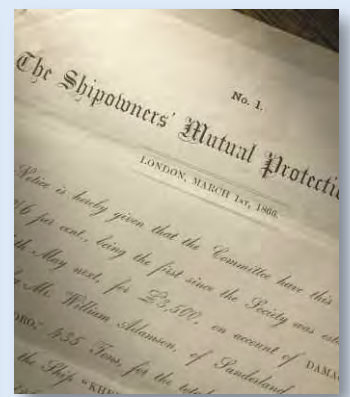 No. 1.
The Shipowners' Mutual Protecti
LONDON, MARCH 1ST, 1866.
Notice is hereby given that the Committee have this
per cent., being the first since the Society was est
May next, for £3,500, on account of DAMA
Mr. William Adamson, of Sunderland
435 Tons, for the total
the Ship "KHE